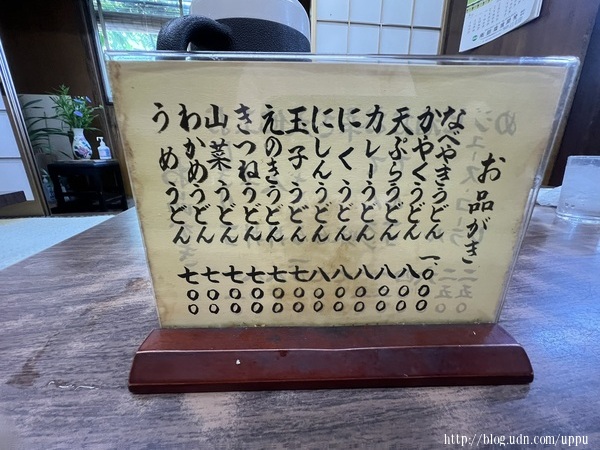 お品がき
なべやきうどん 一、〇〇〇
かやくうどん 八〇〇
天ぷらうどん 八〇〇
カレーうどん 八〇〇
にくうどん 八〇〇
にしんうどん 八〇〇
玉子うどん 七〇〇
えのきうどん 七〇〇
きつねうどん 七〇〇
山菜うどん 七〇〇
わかめうどん 七〇〇
うめうどん 七〇〇
http://blog.udn.com/uppu